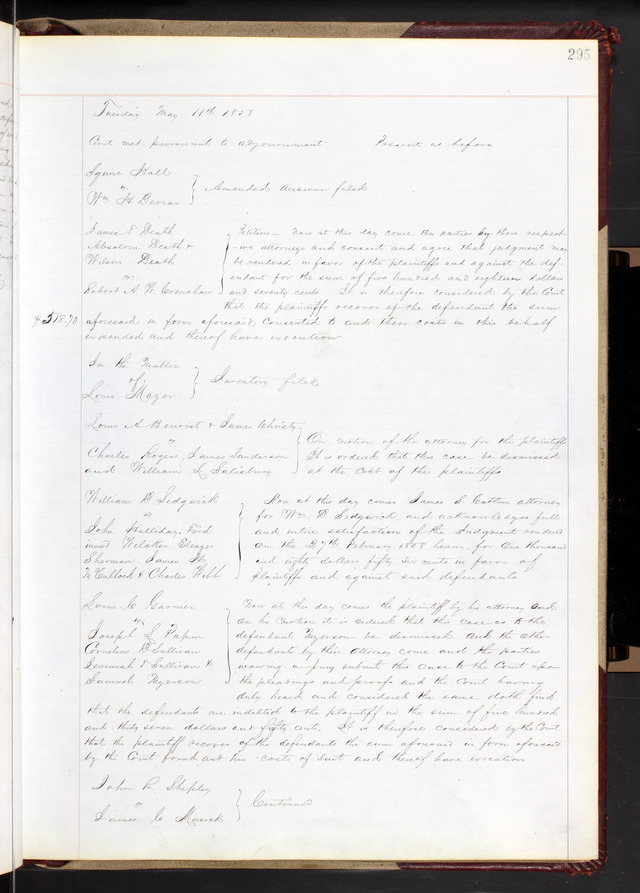 295
Tuesday May 11th 1858
Court met pursuant to adjournment Present as before
Squire Hall
vs
Wm H Devian } Amended Answer filed
James E Death
Absolem Death &
Wilson Death
vs
Robert A. W. Crenshaw
Petition - Now at this day come the parties by their respect-
ive attorneys and consent and agree that judgment may
be rendered in favor of the plaintiffs and against the def
endant for the sum of five hundred and eighteen dollars
and seventy cents It is therefore considered by the Court
that the plaintiffs recover of the defendant the sum
$518.70
aforesaid in form aforesaid Consented to and their costs in this behalf
expended and thereof have execution
In the Matter
of
Louis Mayer } Inventory filed
Louis A Benoist & James Christy
vs
Charles Rogers, James Sanderson
and William L Salisbury
On motion of the attorney for the plaintiff
It is ordered that this case be dismissed
at the cost of the plaintiffs
William D Sedgwick
vs
John Halliday, Ferd
inand Eleazer
Sherman James
McCullock & Charles Webb
Now at this day comes James S attorney
for Wm D Sedgwick, and acknowledges full
and entire satisfaction of the Judgment rendered
on the 27th February 1858 herein, for One thousand
and eighty dollars fifty six cents in favor of
plaintiffs and against said defendants
Louis C Garnier
vs
Joseph L Papin
Cornelius D Sullivan
Jeremiah D Sullivan &
Samuel Myerson
Now at this day comes the plaintiff by his attorney and
on his motion it is ordered that this case as to the
defendant Myerson be dismissed and the other
defendants by their Attorney come and the parties
waiving a jury submit this case to the Court upon
the pleadings and proofs and the Court having
duly heard and considered the same doth find
that the defendants are indebted to the plaintiff in the sum of five hundred
and thirty seven dollars and fifty cents. It is therefore considered by the Court
that the plaintiff recover of the defendants the sum aforesaid in form aforesaid
by the Court found and his costs of suit and thereof have execution
John R. Shepley
vs
James C Musick } Continued